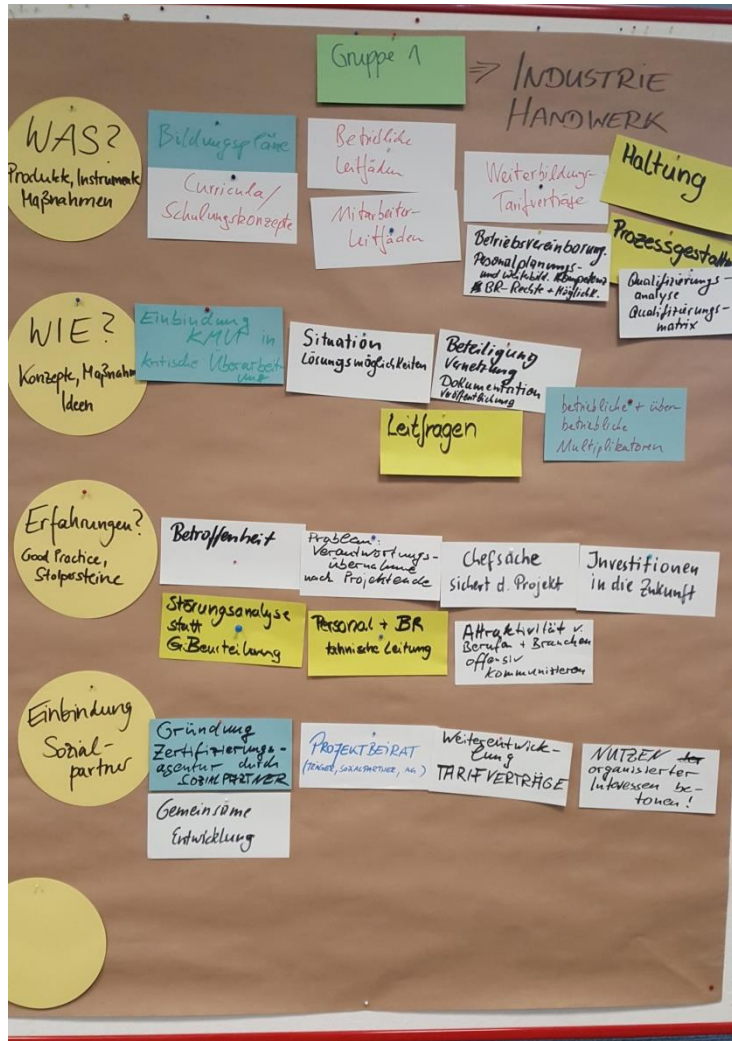 Gruppe 1
⇒ INDUSTRIE
HANDWERK
WAS?
Produkte, Instrumente
Maßnahmen
Bildungspläne
Curricula/
Schulungskonzepte
Betriebliche
Leitfäden
Mitarbeiter-
Leitfäden
Weiterbildungs-
Tarifverträge
Betriebsvereinbarung.
Personalplanungs-
und weiterbild. Kompetenz
BR-Rechte + Möglichk.
Haltung
Prozessgestaltu
Qualifizierungs-
analyse
Qualifizierungs-
matrix
WIE?
Konzepte, Maßnahm
Ideen
Einbindung
KMU in
kritische Überarbeit
ung
Situation
Lösungsmöglichkeiten
Beteiligung
Vernetzung
Dokumentation
Veröffentlichung
Leitfragen
betriebliche + über-
betriebliche
Multiplikatoren
Erfahrungen?
Good Practice,
Stolpersteine
Betroffenheit
Problem:
Verantwortungs-
übernahme
nach Projektende
Chefsache
sichert d. Projekt
Investitionen
in die Zukunft
Störungsanalyse
statt
G.Beurteilung
Personal + BR
technische Leitung
Attraktivität v.
Berufen + Branchen
offensiv
kommunizieren
Einbindung
Sozial-
partner
Gründung
Zertifizierungs-
agentur durch
SOZIALPARTNER
Gemeinsame
Entwicklung
PROJEKTBEIRAT
(TRÄGER, SOZIALPARTNER, AG)
Weiterentwick-
lung
TARIFVERTRÄGE
NUTZEN der
organisierter
Interessen be-
tonen!